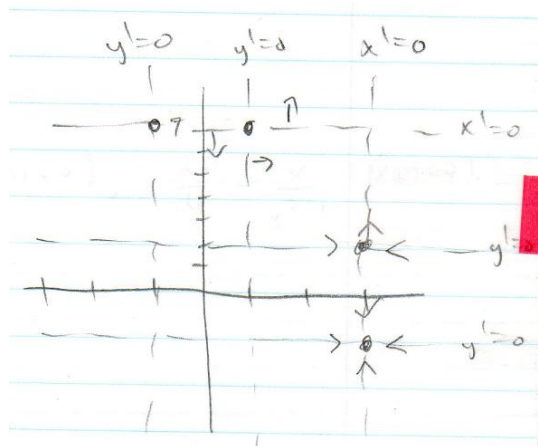 y'=0 y'=0 x'=0
x'=0
y'=
y'=0